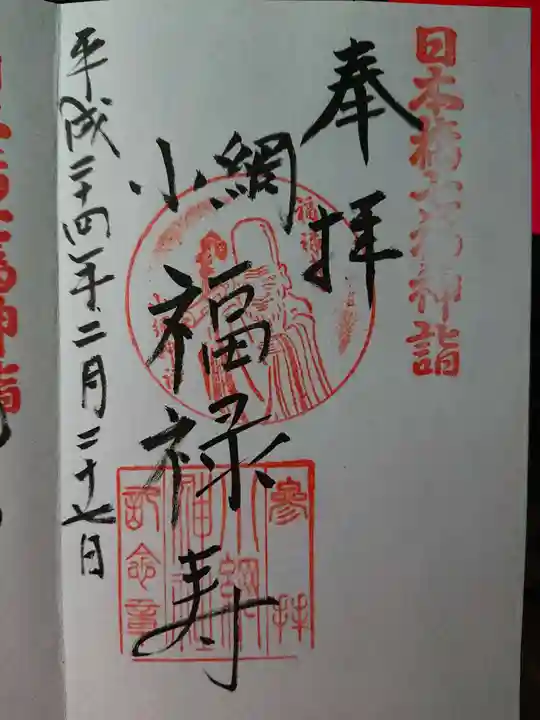 日本橋七福神詣
奉拝
小網
福禄寿
平成二十四年二月二十七日
参拝
小網
神社
記念章